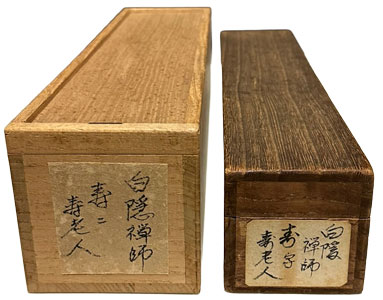 白隠禅師
寿ニ
寿老人
白隠
禅師
寿字
寿老人